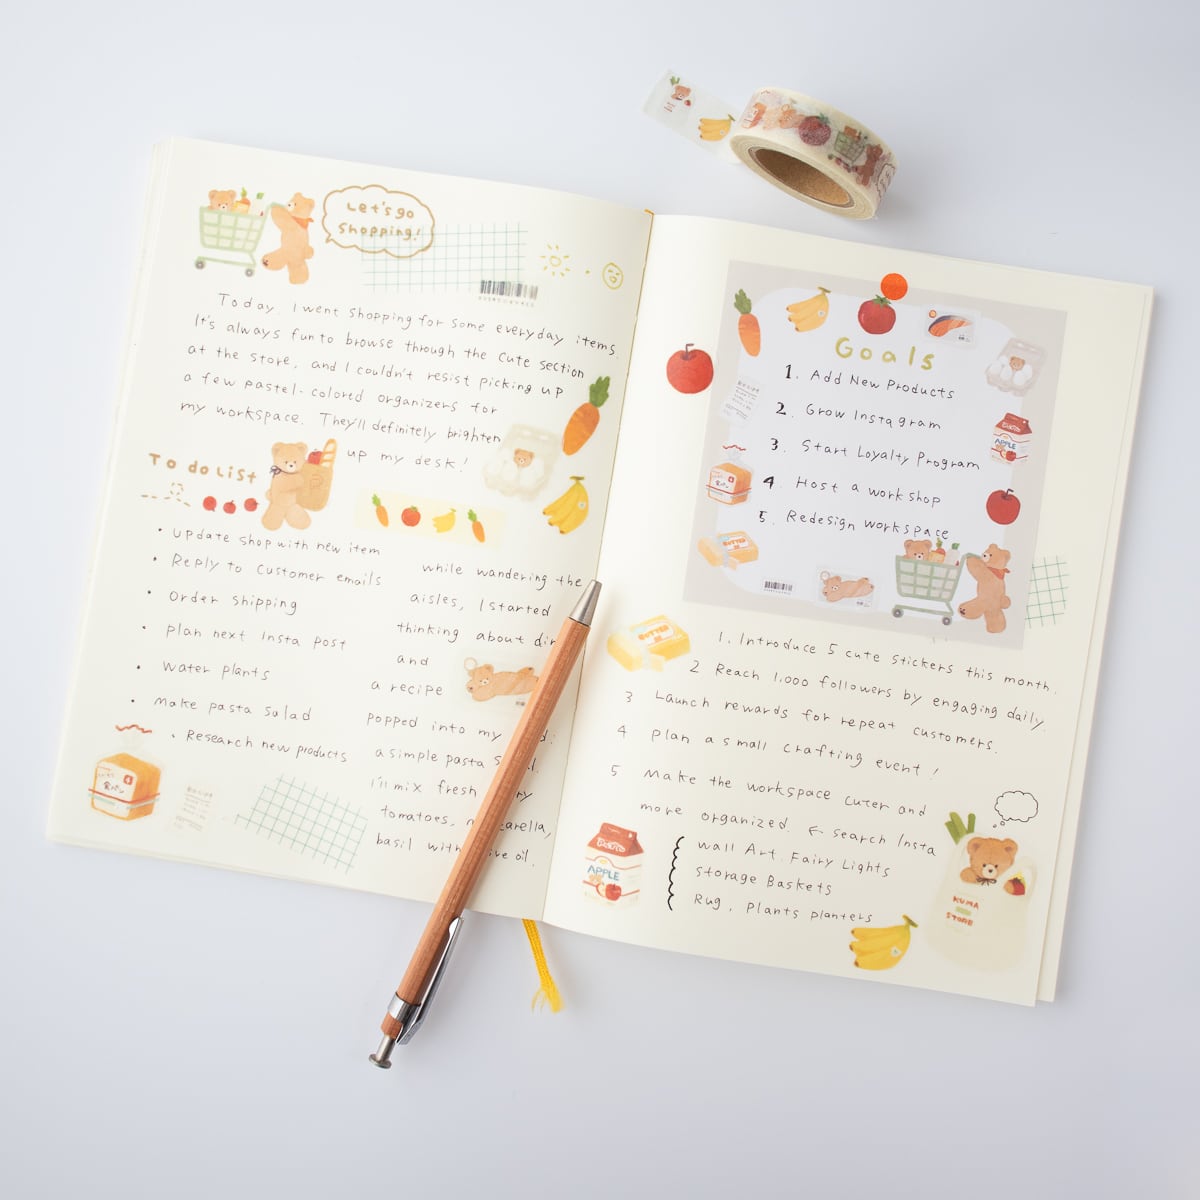 Let's go
Shopping!
Today, I went shopping for some everyday items.
It's always fun to browse through the cute section
at the store, and I couldn't resist picking up
a few pastel-colored organizers for
my workspace. They'll definitely brighten
up my desk!
To do List
• Update shop with new item
• Reply to customer emails
• Order shipping
• plan next Insta post
• Water plants
• Make pasta salad
• Research new products
while wandering the
aisles, I started
thinking about
and
a recipe
popped into my
a simple pasta
I'll mix fresh
tomatoes,
basil
oil.
食パン
Goals
1. Add New Products
2. Grow Instagram
3. Start Loyalty Program
4. Host a workshop
5. Redesign workspace
APPLE
BUTTER
BUTTER
1. Introduce 5 cute stickers this month.
2 Reach 1,000 followers by engaging daily.
3 Launch rewards for repeat customers.
4 plan a small crafting event!
5 Make the workspace cuter and
more organized. ← search Insta
wall Art. Fairy Lights
storage Baskets
Rug, Plants planters
APPLE
KUMA
STORE